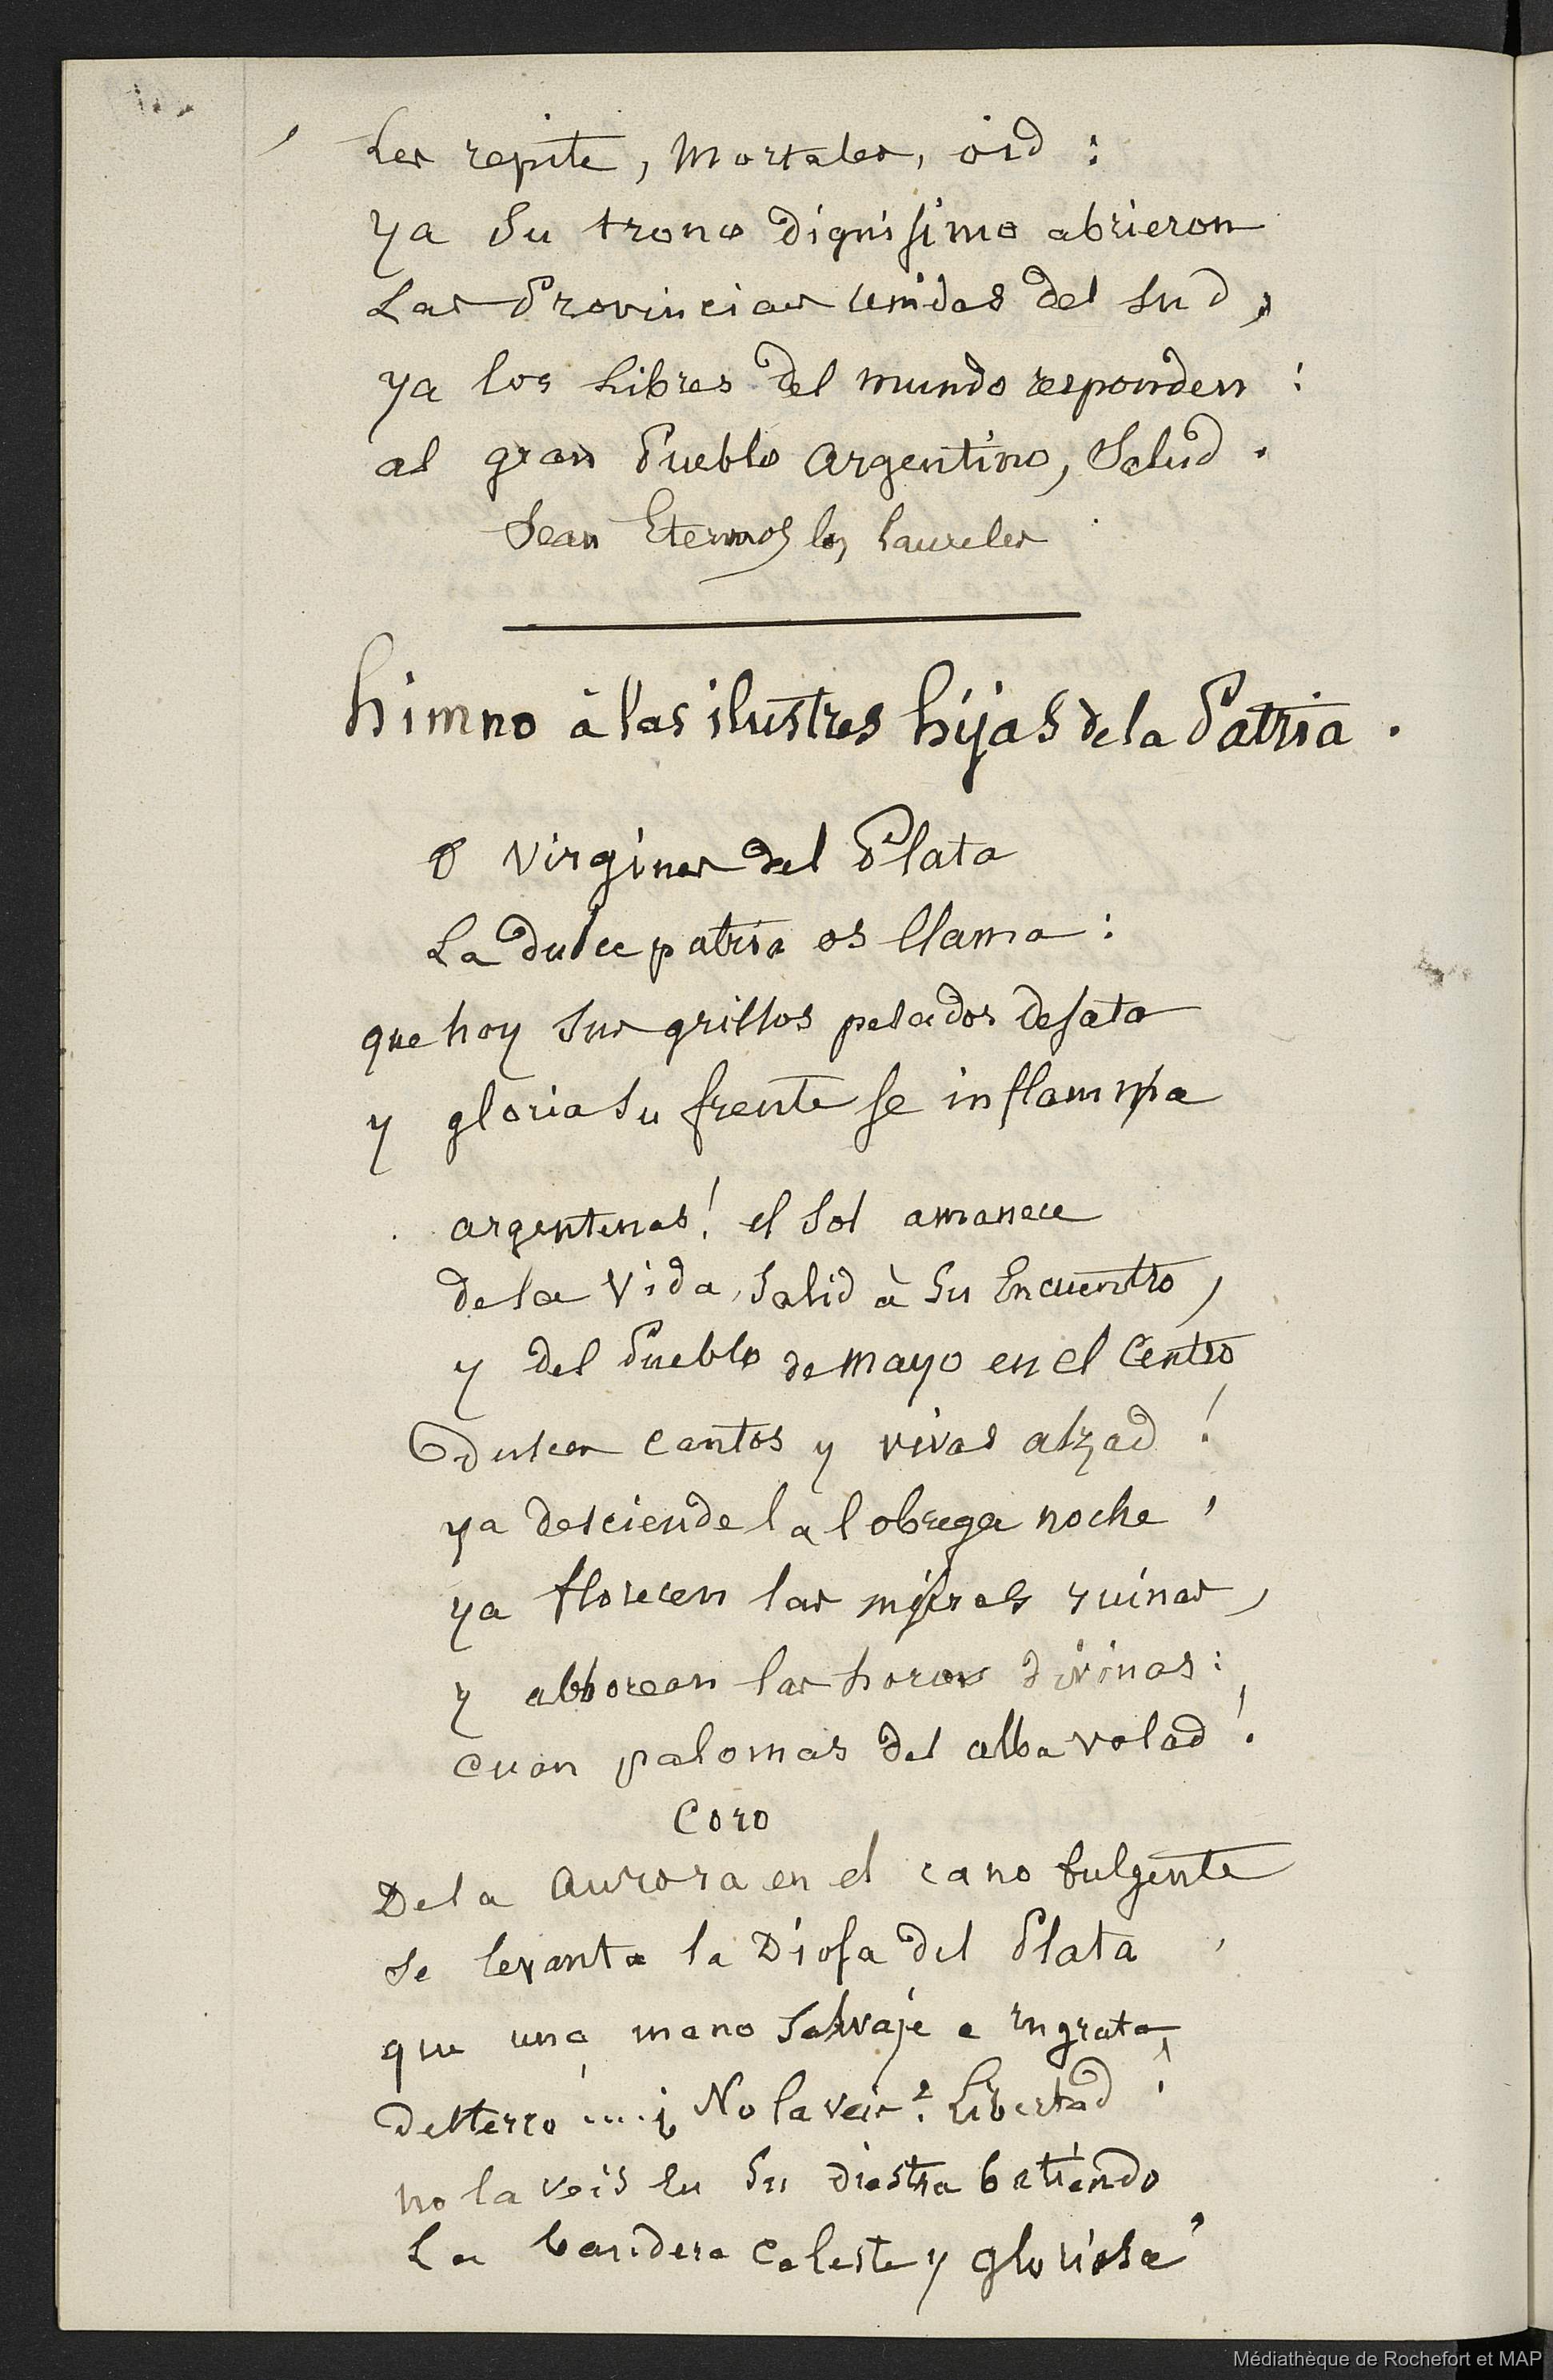 Les repite, Mortales, oid :
ya su trono dignisimo abrieron
Las Provincias unidas del Sud,
ya los Libres del mundo responden :
al gran Pueblo argentino, Salud .
Sean Eternos los Laureles
himno à las ilustres hijas de la Patria .
O Virgines del Plata
La dulce patria os llama :
que hoy sus grillos pesados desata
y gloria su frente se inflama
argentinas ! el Sol amanece
de la Vida, Salid à Su Encuentro,
y del Pueblo de mayo en el Centro
dulces cantos y vivas alzad !
ya desciende la lobrega noche ,
ya florecen las ruinas,
y alborean las horas divinas :
cuan palomas del alba volad !
Coro
De la aurora en el cano fulgente
se levanta la Diosa del Plata ,
que una mano Salvaje e ingrata
desterro .... ¿ No la veis ? Libertad !
no la veis en Su diestra batiendo
La bandera celeste y gloriosa
Médiathèque de Rochefort et MAP